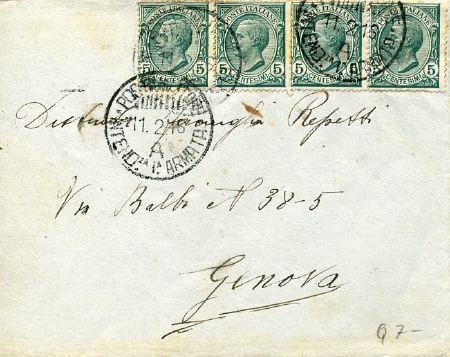 POSTE ITALIANE POSTE ITALIANE POSTE ITALIANE POSTE ITALIANE
5 CENTESIMI 5 5 CENTESIMI 5 5 CENTESIMI 5 5 CENTESIMI 5
11. 2. 16
A
INTEND.ZA 1ª ARMATA
famiglia Repetti
Via Balbi N 38-5
Genova
Q 7-